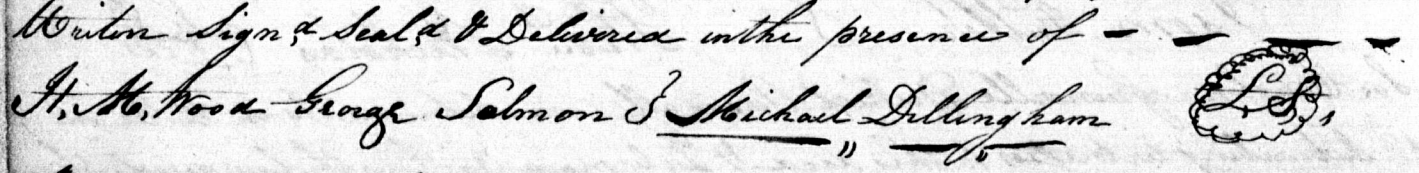 Writen Sign,d Seal,d & Delivered in the presence of – – – –
H. M. Wood George Salmon } Michael Dillingham L.S.